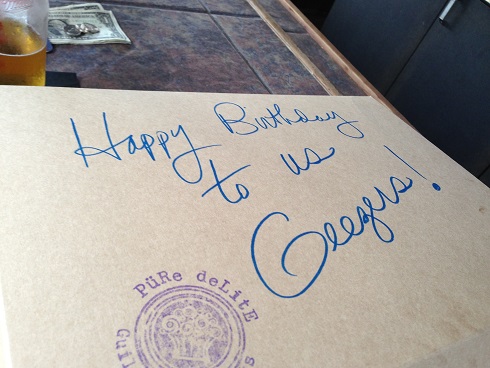 Happy Birthday
to us
Geezers!
PüRe deLitE